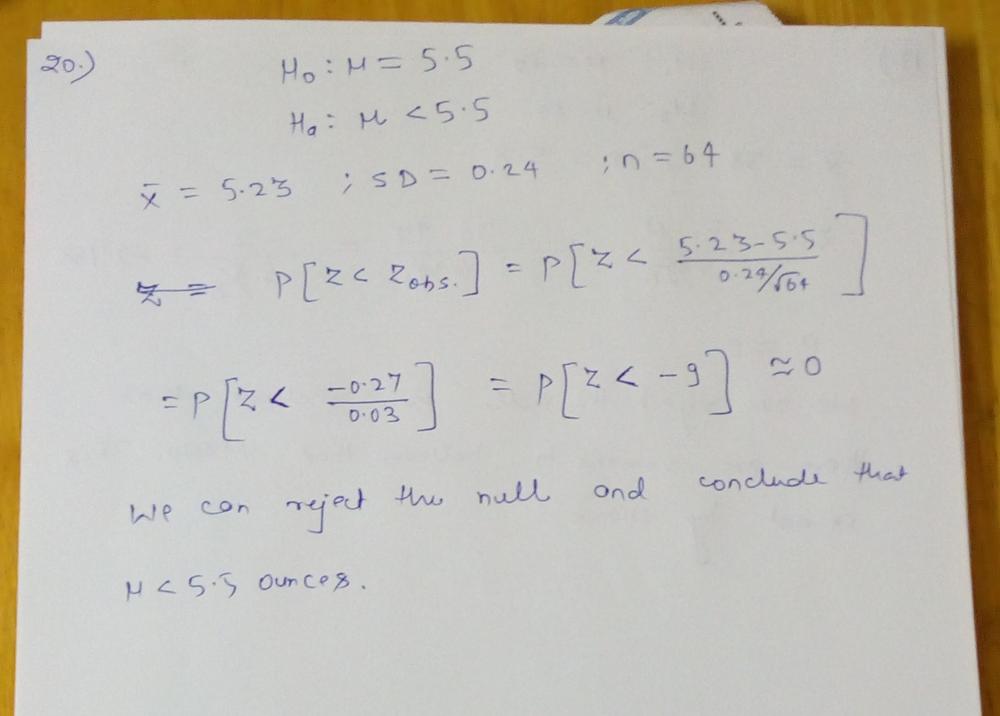 20.) H₀ : μ = 5.5
Hₐ : μ < 5.5
x̄ = 5.23 ; SD = 0.24 ; n = 64
z = P[Z < Zobs.] = P[Z < (5.23-5.5)/(0.24/√64)]
= P[Z < -0.27/0.03] = P[Z < -9] ≈ 0
We can reject the null and conclude that
μ < 5.5 ounces.